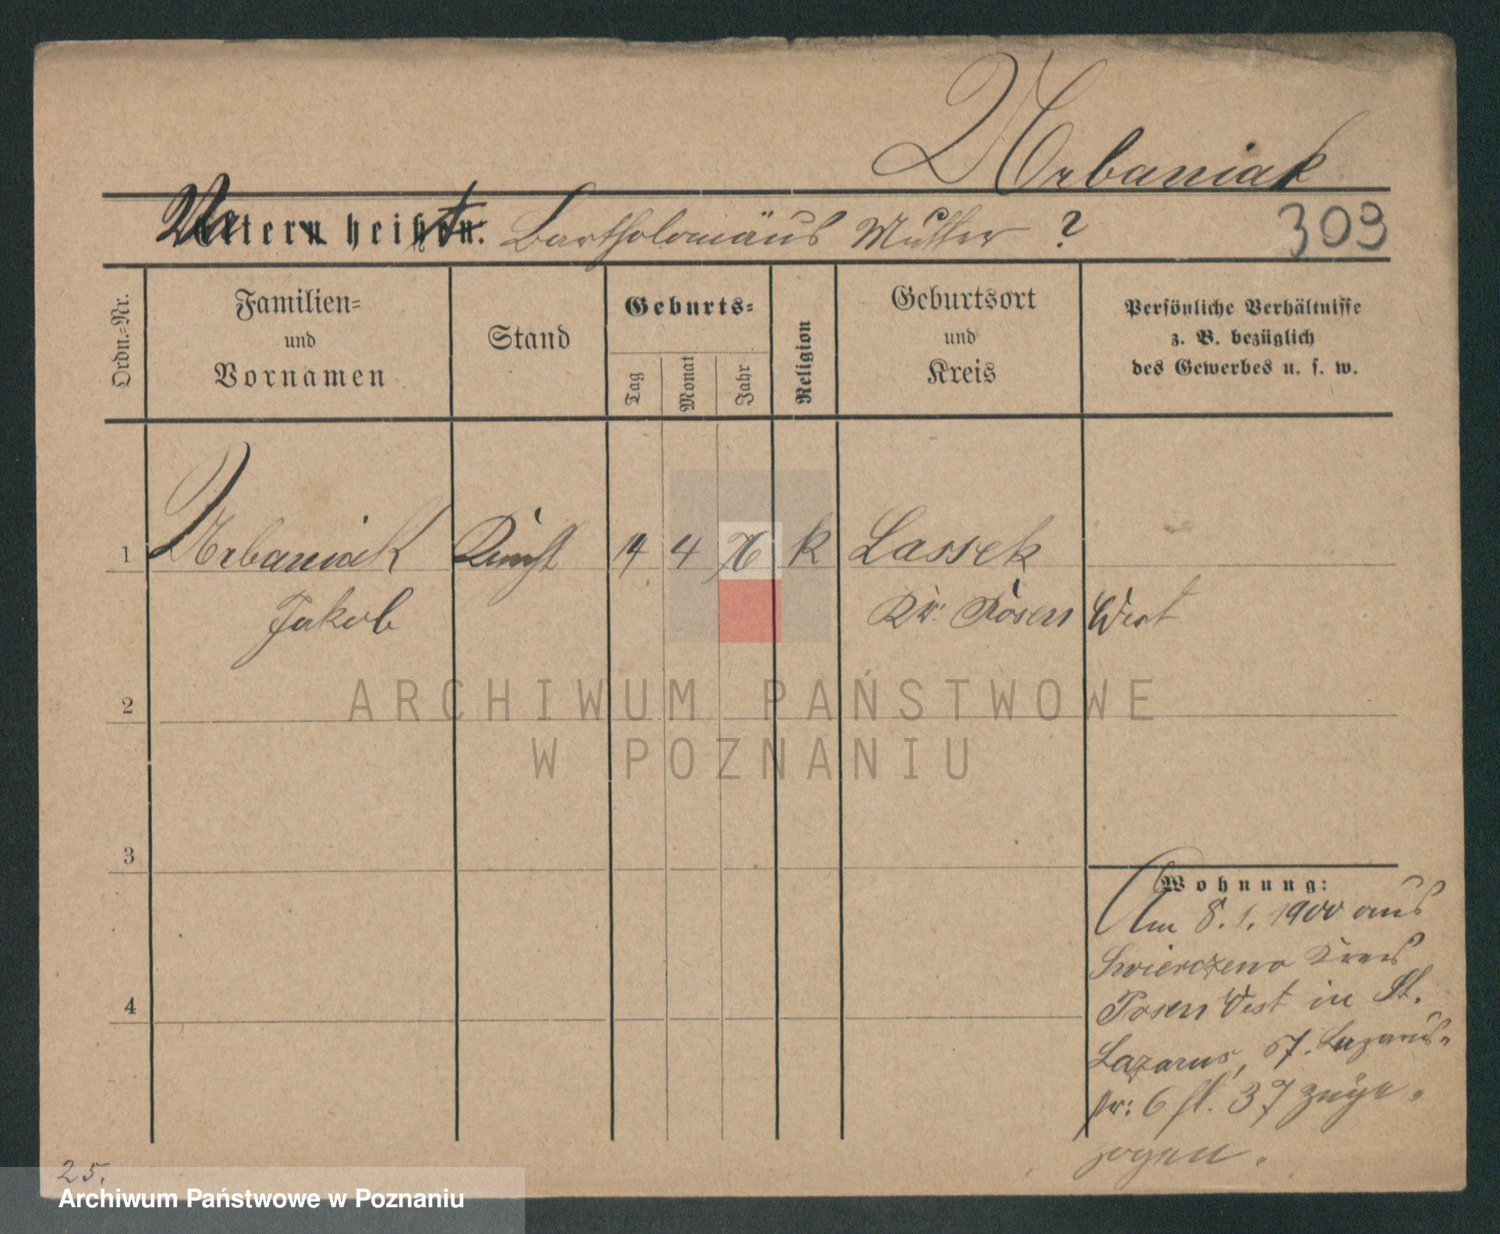 Urbaniak
Vater heißt. Bartholomäus Mutter ?
309
Ordn.-Nr.
Familien-
und
Vornamen
Stand
Geburts-
Tag
Monat
Jahr
Religion
Geburtsort
und
Kreis
Persönliche Verhältnisse
z. B. bezüglich
des Gewerbes u. s. w.
1 Urbaniak Knecht 4 k Lassek
Jakob Kr. Posen West
2
3
4
ARCHIWUM PAŃSTWOWE
W POZNANIU
Wohnung:
Am 8. 1. 1900 aus
Swierczewo Kreis
Posen West in St.
Lazarus, Lazarus-
str: 6 37 zuge-
zogen.
25.
Archiwum Państwowe w Poznaniu